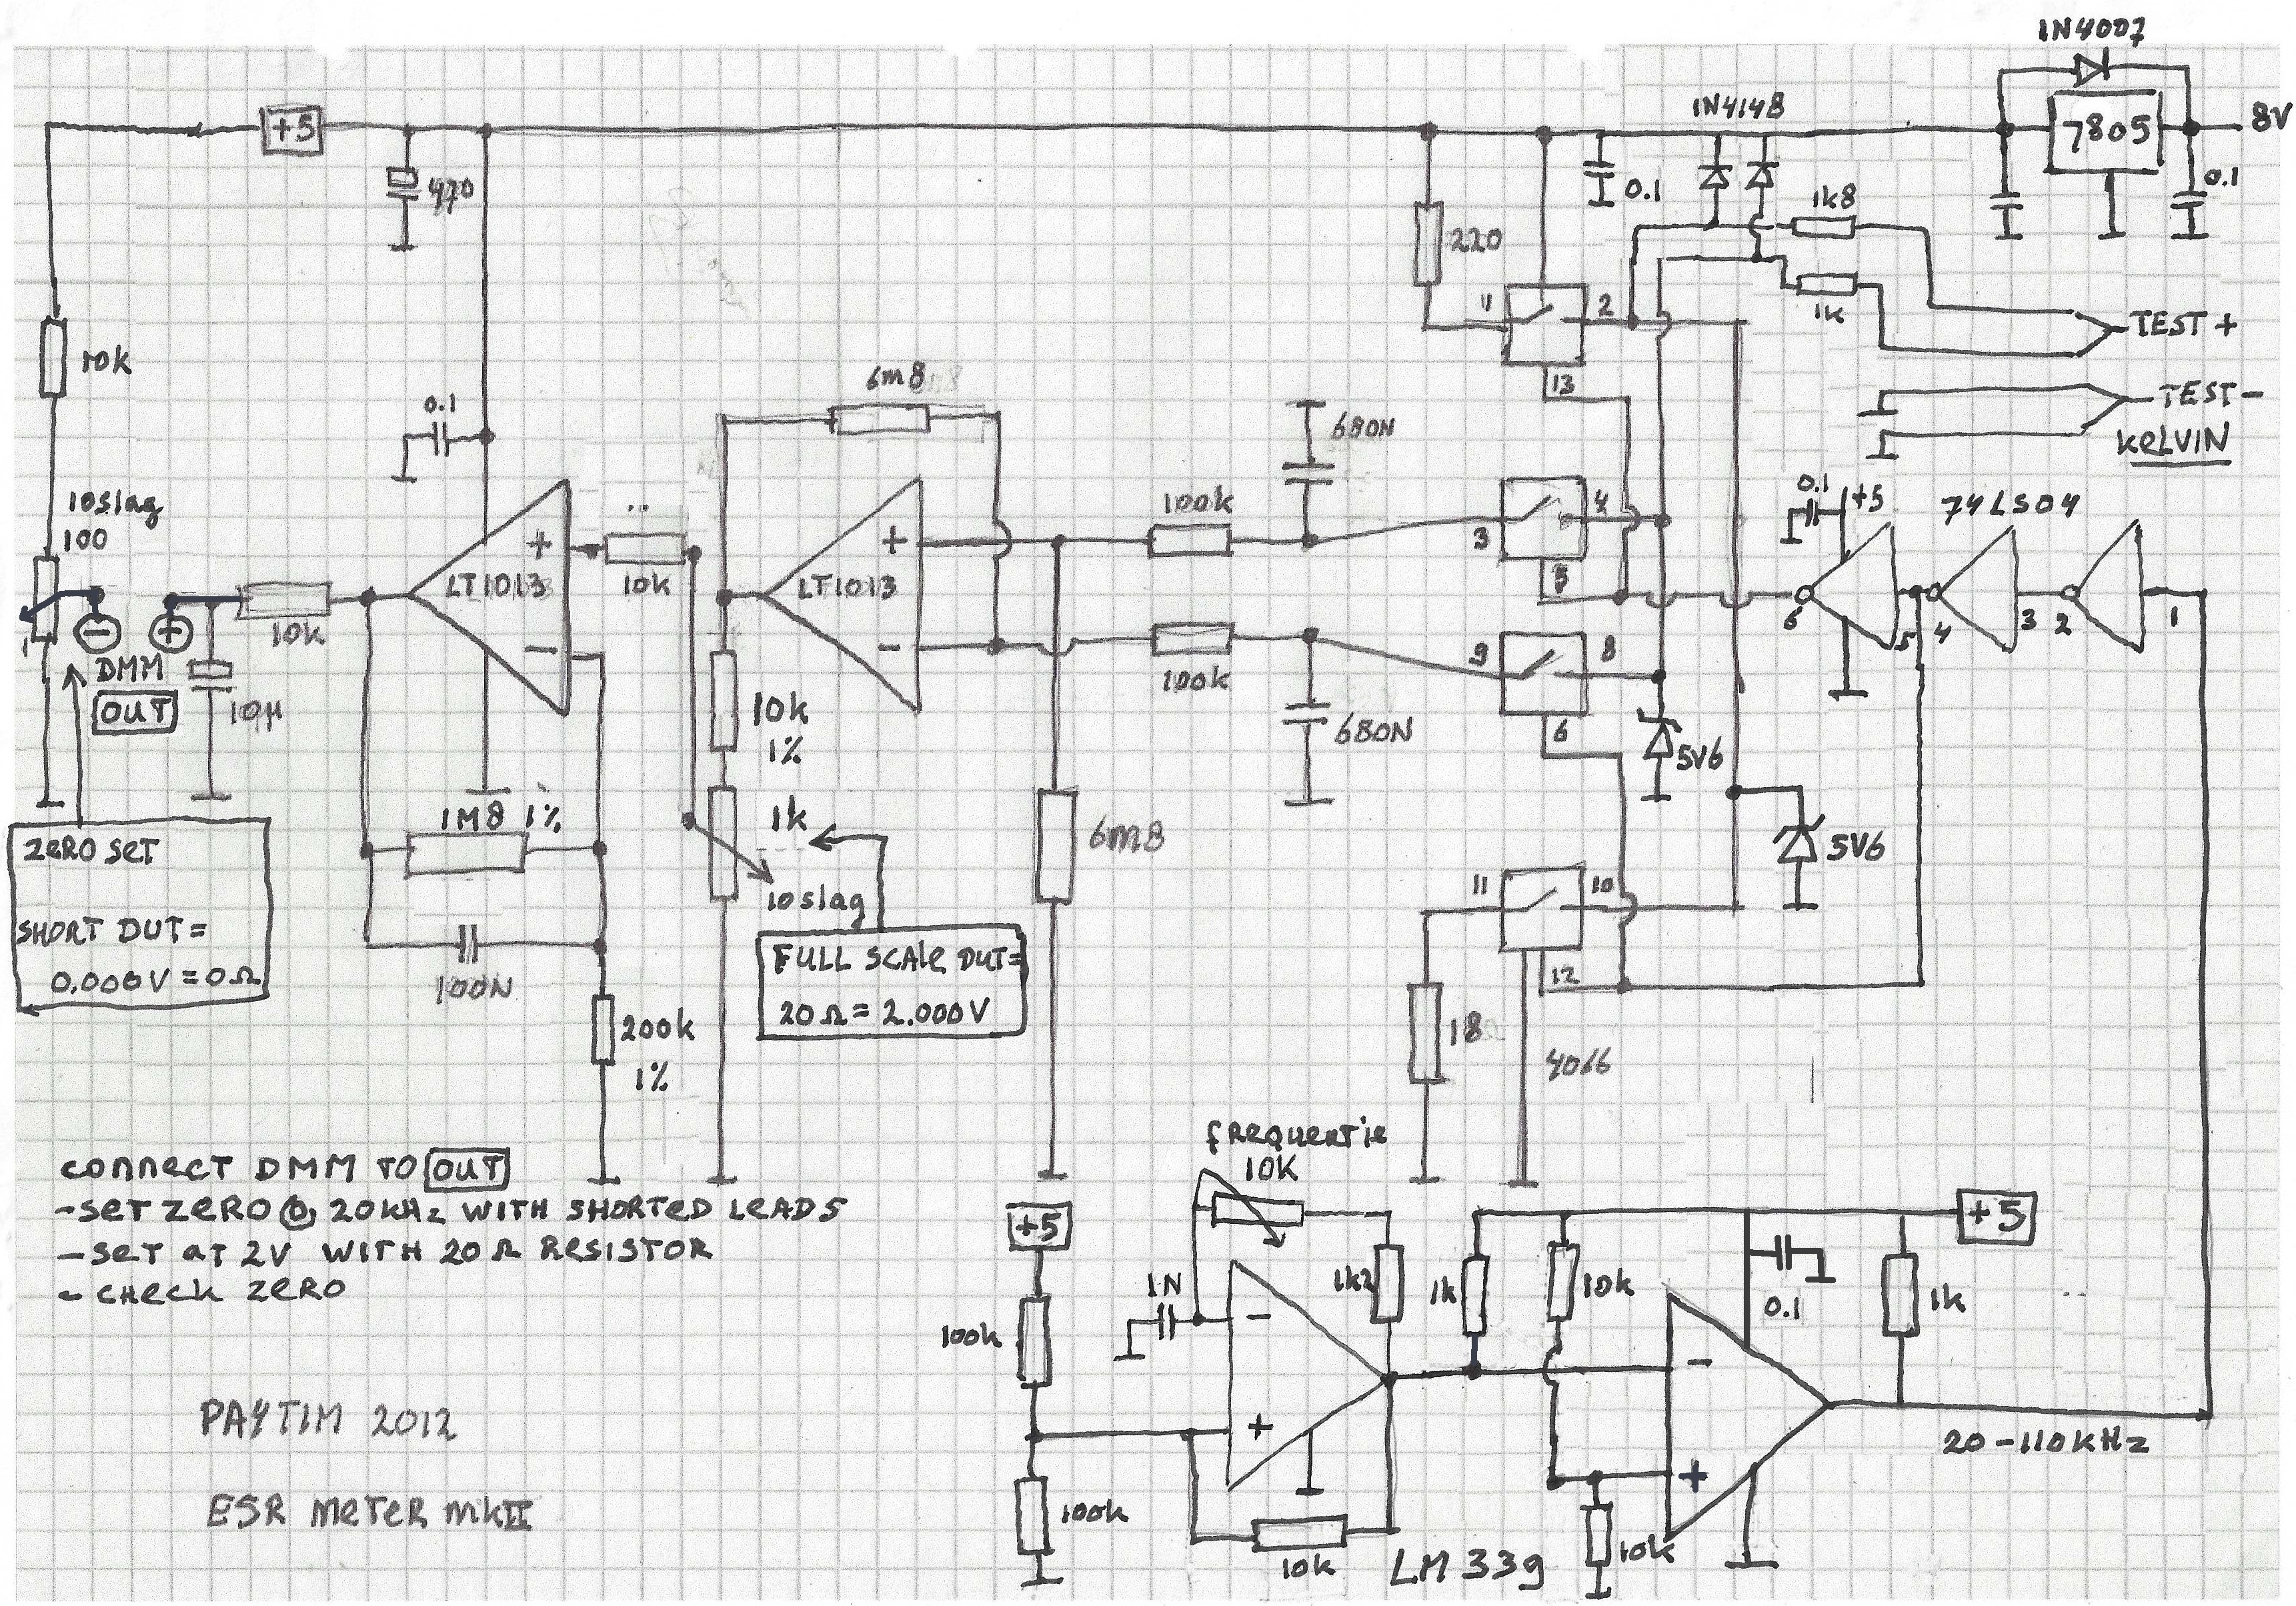 1N4007
1N4148
+5
7805
8V
470
0.1
0.1
1k8
220
1
2
1k
TEST +
10k
6m8
13
0.1
680N
TEST –
KELVIN
10slag
100
100k
4
3
0.1
+5
74LS04
+
LT1013
10k
+
LT1013
5
6
5
4
3
2
1
–
+
10k
DMM
OUT
10µ
–
–
100k
9
8
10k
1%
680N
6
5V6
ZERO SET
SHORT DUT =
0.000V = 0Ω
1M8 1%
1k
10slag
6m8
5V6
11
10
100N
FULL SCALE DUT=
20Ω = 2.000V
12
200k
1%
18
4066
CONNECT DMM TO OUT
- SET ZERO @ 20KHz WITH SHORTED LEADS
- SET AT 2V WITH 20Ω RESISTOR
- CHECK ZERO
frequentie
10K
+5
+5
1N
1k2
1k
10k
0.1
1k
100k
–
–
+
+
20-110KHz
100k
10k
LM339
10k
PAYTIM 2012
ESR METER MKII